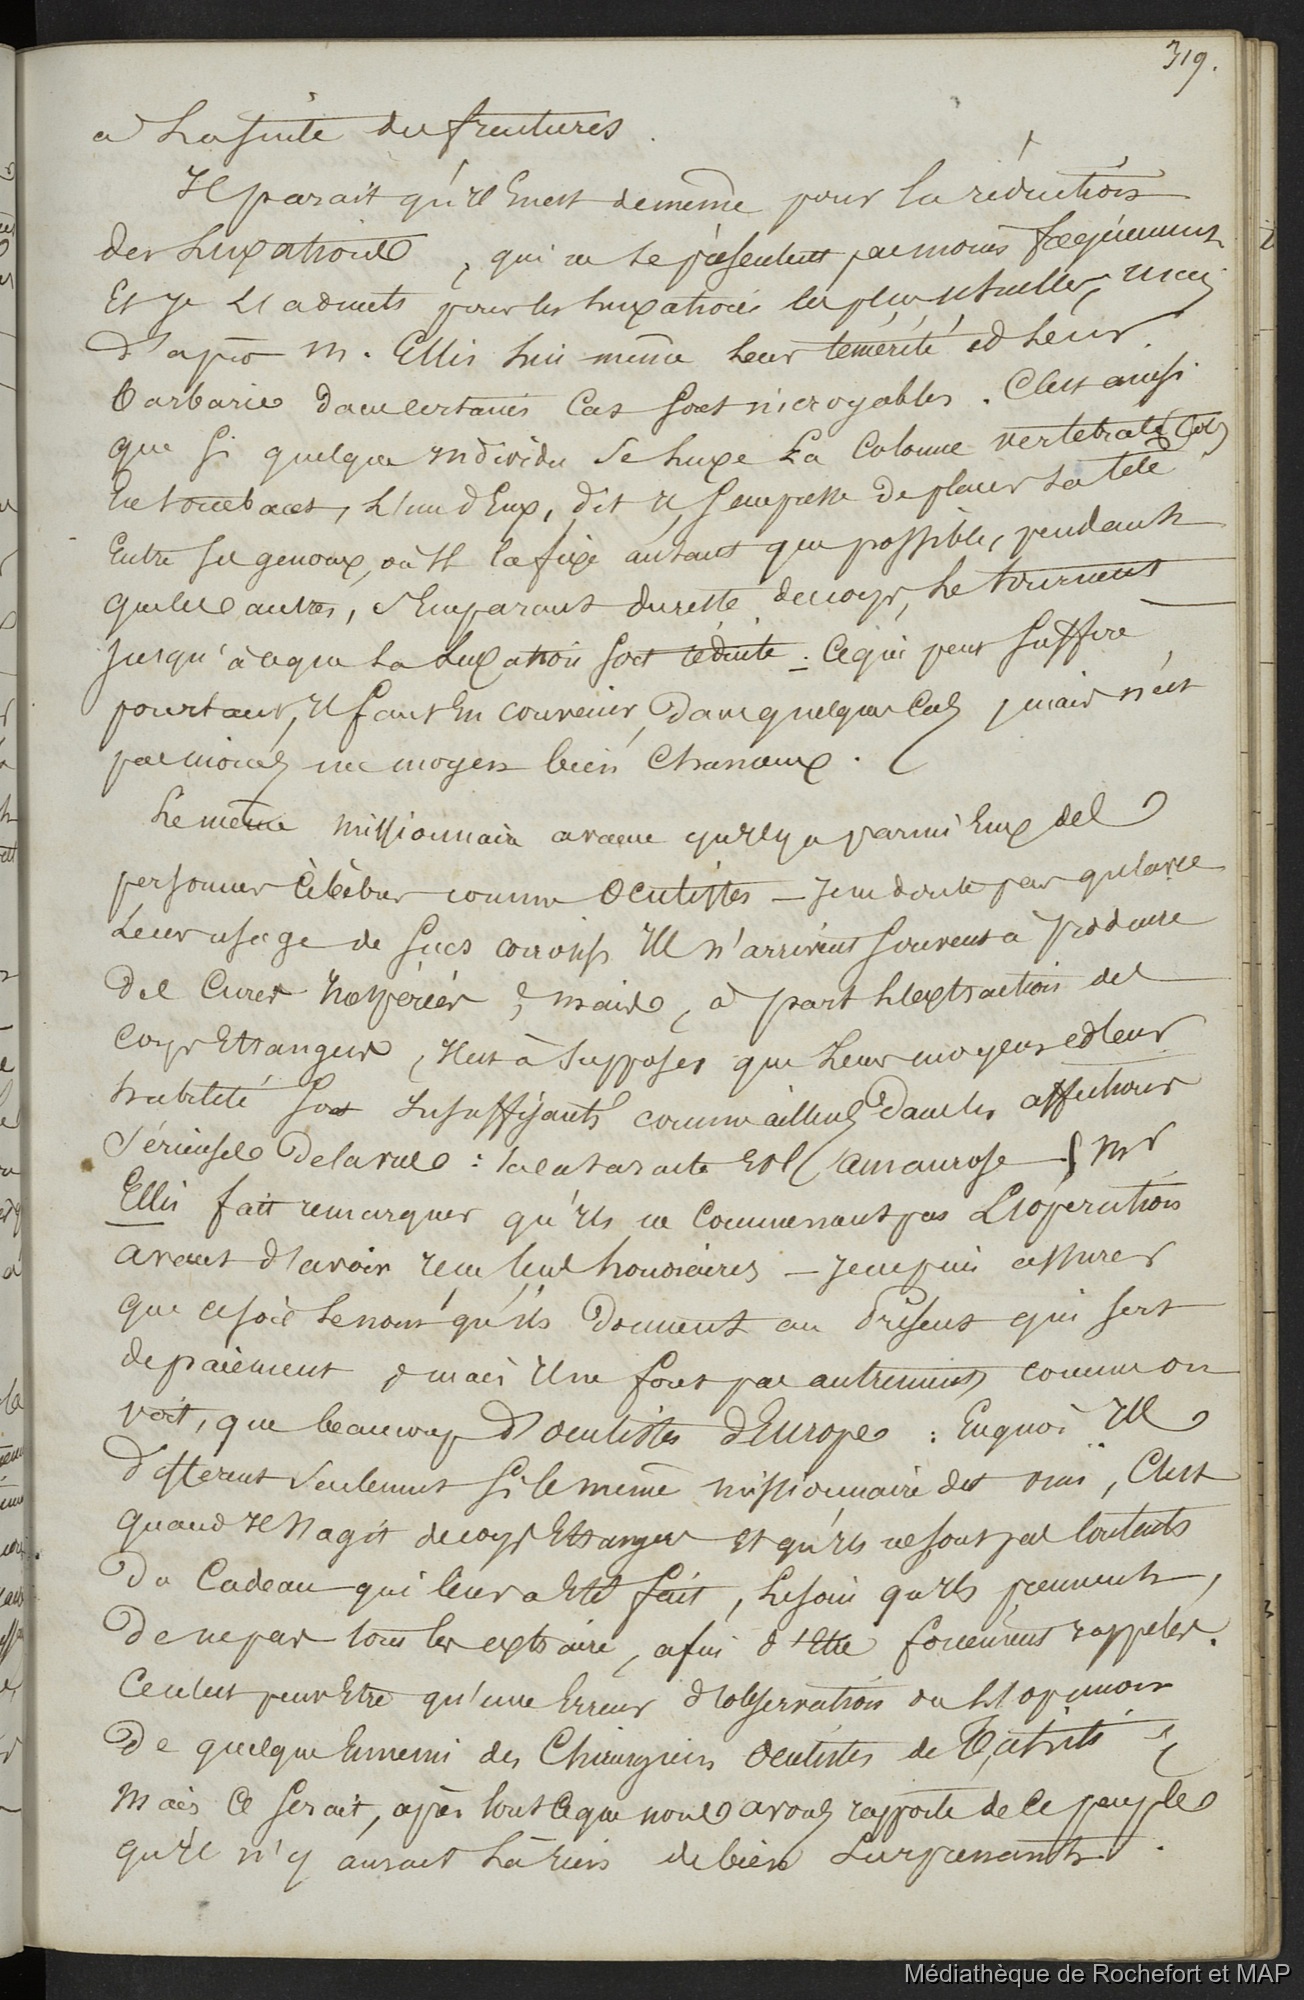 319.
a La suite des fractures.
Il parait qu'il En est de même pour la réduction
des Luxations, qui ne se présentent pas moins fréquemment
Et je L'admets pour les luxations les plus usuelles, mais
D'après M. Ellis lui même leur témérité et leur
barbarie dans certains Cas sont incroyables. C'est ainsi
que si quelque individu se luxe La Colonne vertébrale
En tombant, L'un d'Eux, dit il, s'empresse De placer sa tête
Entre ses genoux, où Il la fixe autant que possible, pendant
que les autres, s'Emparant du reste du corps, Le tournent
jusqu'à ce que La Luxation soit réduite. Ce qui peut suffire
pourtant, Il faut En convenir, Dans quelques Cas, mais n'est
pas moins un moyen bien Chanceux.
Le même missionnaire avance qu'il y a parmi Eux des
personnes Célèbres comme Oculistes – Je ne doute pas qu'avec
Leur usage de Sucs corrosifs Ils n'arrivent souvent à produire
Des Cures inespérées, mais, à part L'extraction des
Corps Etrangers, Il est à supposer que Leurs moyens et leur
habileté sont Insuffisants comme ailleurs Dans les affections
Sérieuses De la vue : la cataracte Et L'amaurose – Mr
Ellis fait remarquer qu'ils ne Commencent pas L'opération
avant d'avoir reçu leurs honoraires – Je ne puis assurer
que ce soit Le nom qu'ils Donnent au Présent qui sert
de paiement, mais Ils ne font pas autrement, comme on
voit, que beaucoup D'oculistes d'Europe : En quoi Ils
Diffèrent Seulement si le même missionnaire dit vrai, C'est
quand Il s'agit de corps Etrangers Et qu'ils ne sont pas Contents
Du Cadeau qui leur a Eté fait, Le soin qu'ils prennent,
De ne pas tous les extraire, afin d'être forcément rappelés.
Ce n'est peut Etre qu'une Erreur d'observation ou L'opinion
De quelque Ennemi des Chirurgiens Oculistes de Taïti
Mais Ce serait, après tout Ce que nous avons rapporté de Ce peuple
qu'il n'y aurait Là rien de bien Surprenant.
Médiathèque de Rochefort et MAP